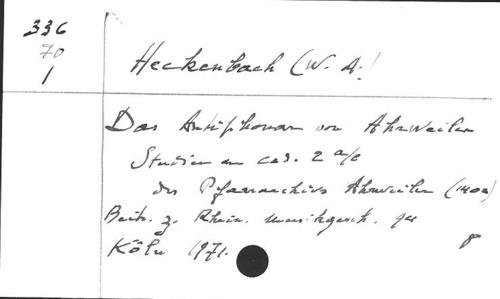 336
70
1
Heckenbach (W. A.)
Das Antiphonar von Ahrweiler
Studien an cod. 2 a/c
des Pfarrarchivs Ahrweiler (1400)
Beitr. z. Rhein. Musikgesch. 94
Köln 1971.
8